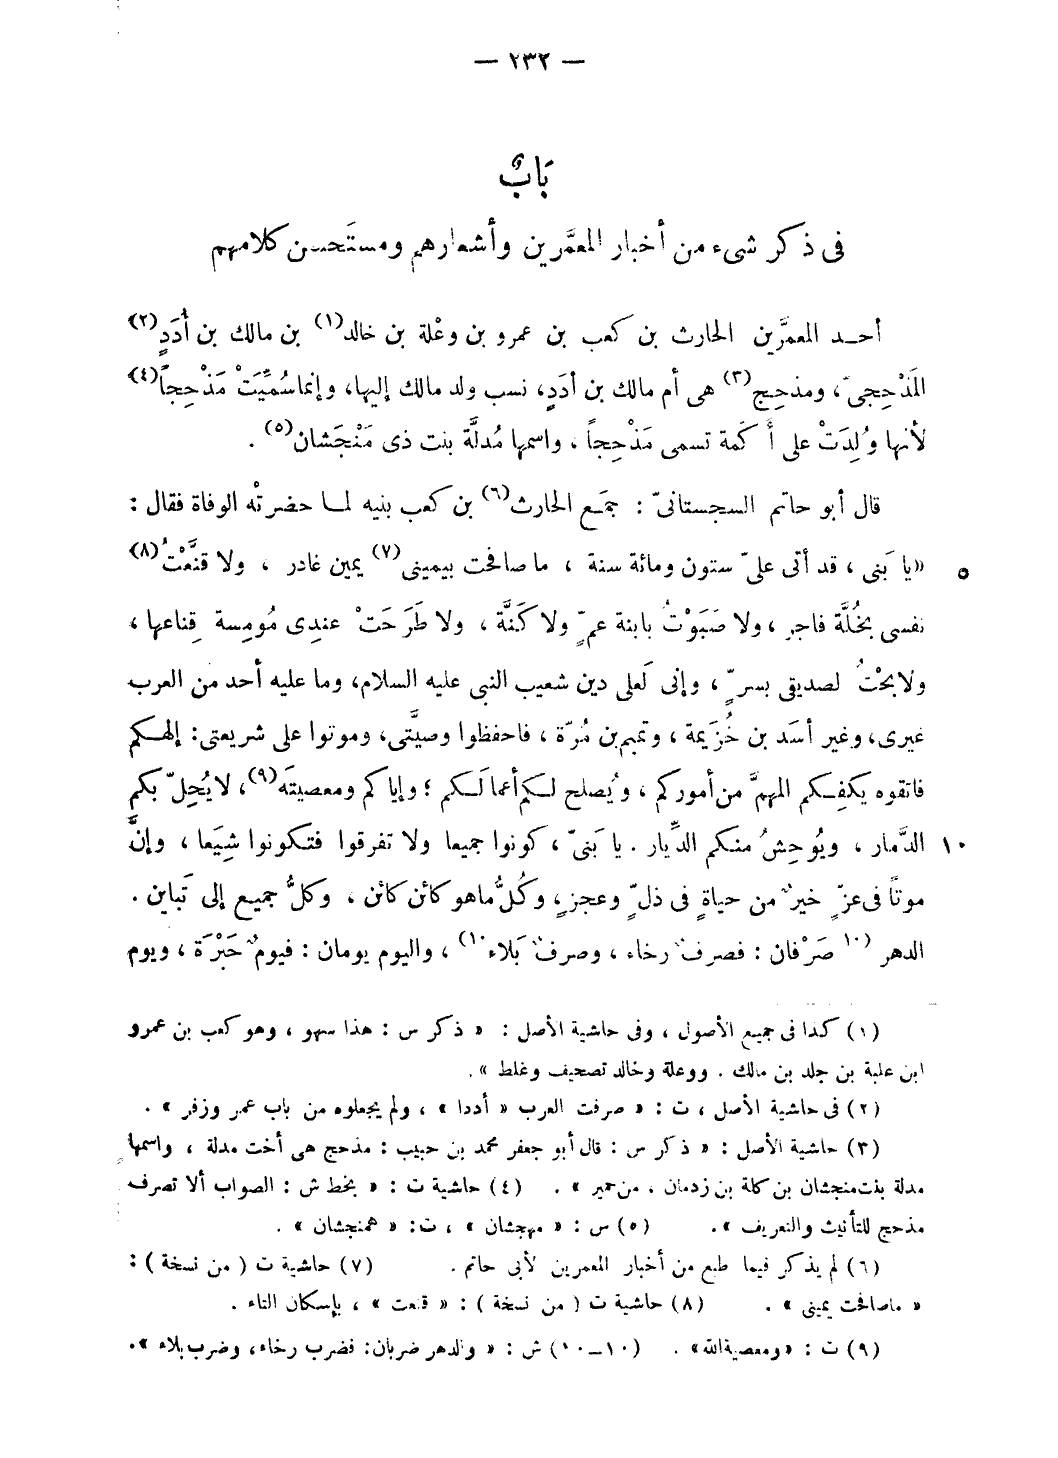 — ٢٣٢ —
بَابٌ
فى ذكر شىء من أخبار المعمَّرين وأشعارهم ومستَحسن كلامهم
أحـد المعمَّرين الحارث بن كعب بن عمرو بن وعْلة بن خالد(١) بن مالك بن أُدَدٍ(٢)
المَذْحِجىّ، ومذحِج(٣) هى أم مالك بن أدَدٍ، نسب ولد مالك إليها، وإنما سُمِّيَتْ مَذْحِجاً(٤)
لأنها وُلِدَتْ على أَكَمة تسمى مَذْحِجاً، واسمها مُدلَّة بنت ذى مَنْجَشان(٥) .
قال أبو حاتم السجستانىّ : جمَع الحارث(٦) بن كعب بنيه لمـا حضرتْه الوفاة فقال :
«يا بَنى ، قد أتى علىّ ستون ومائة سنة ، ما صافحت بيمينى(٧) يمين غادر ، ولا قنَّعْتُ(٨)
٥
نفسى بخُلَّة فاجر ، ولا صَبَوْتُ بابنة عمٍّ ولا كَنَّة ، ولا طَرَحَتْ عندِى مُومِسة قِناعها ،
ولا بحْتُ لصديقى بسرٍّ ، وإنى لَعلى دين شعيب النبى عليه السلام، وما عليه أحد من العرب
غيرى، وغير أسَد بن خُزَيمة ، وتميم بن مُرّة ، فاحفظوا وصيَّتى، وموتوا على شريعتى: إلهكم
فاتقوه يكفِـكم المهمَّ من أموركم ، ويُصلح لـكم أعمالَـكم ؛ وإياكم ومعصيتَه(٩)، لا يُحِلّ بكم
الدَّمار ، ويُوحِشُ منـكم الدِّيار . يا بَنىّ ، كونوا جميعا ولا تفرقوا فتـكونوا شِيَعا ، وإنَّ
١٠
موتاً فى عزٍّ خيرٌ من حياةٍ فى ذلٍّ وعجزٍ، وكُلُّ ما هو كائن كائن ، وكلُّ جميع إلى تَباين .
الدهر (١٠ صَرْفان : فصرفٌ رخاء ، وصرفٌ بَلاء ١٠) ، واليوم يومان : فيومٌ حَبْرَة ، ويوم
(١) كذا فى جميع الأصول ، وفى حاشية الأصل : « ذكر س : هذا سهو ، وهو كعب بن عمرو
ابن علبة بن جلد بن مالك . ووعلة وخالد تصحيف وغلط » .
(٢) فى حاشية الأصل ، ت : « صرفت العرب « أددا » ، ولم يجعلوه من باب عمر وزفر » .
(٣) حاشية الأصل : « ذكر س : قال أبو جعفر محمد بن حبيب : مذحج هى أخت مدلة ، واسمها
مدلة بنت منجشان بن كلة بن زدمان ، من حمير » . (٤) حاشية ت : « بخط ش : الصواب ألا تصرف
مذحج للتأنيث والتعريف » . (٥) س : « مهجشان » ، ت : « همنجشان » .
(٦) لم يذكر فيما طبع من أخبار المعمرين لأبى حاتم . (٧) حاشية ت ( من نسخة ) :
« ماصافحت يمينى » . (٨) حاشية ت ( من نسخة ) : « قنعت » ، بإسكان التاء .
(٩) ت : « ومعصية الله » . (١٠-١٠) ش : « والدهر ضربان: فضرب رخاء، وضرب بلاء ».